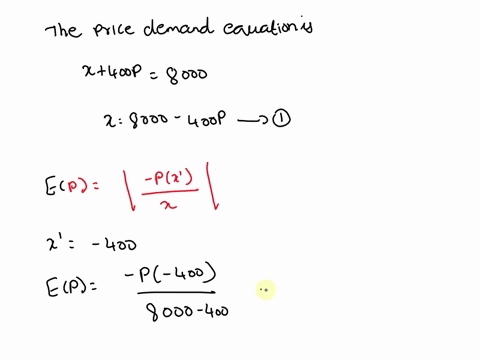 The price demand equation is
x+400P = 8000
x = 8000 - 400P → ①
E(P) = | -P(x') / x |
x' = -400
E(P) = -P(-400) / 8000-400